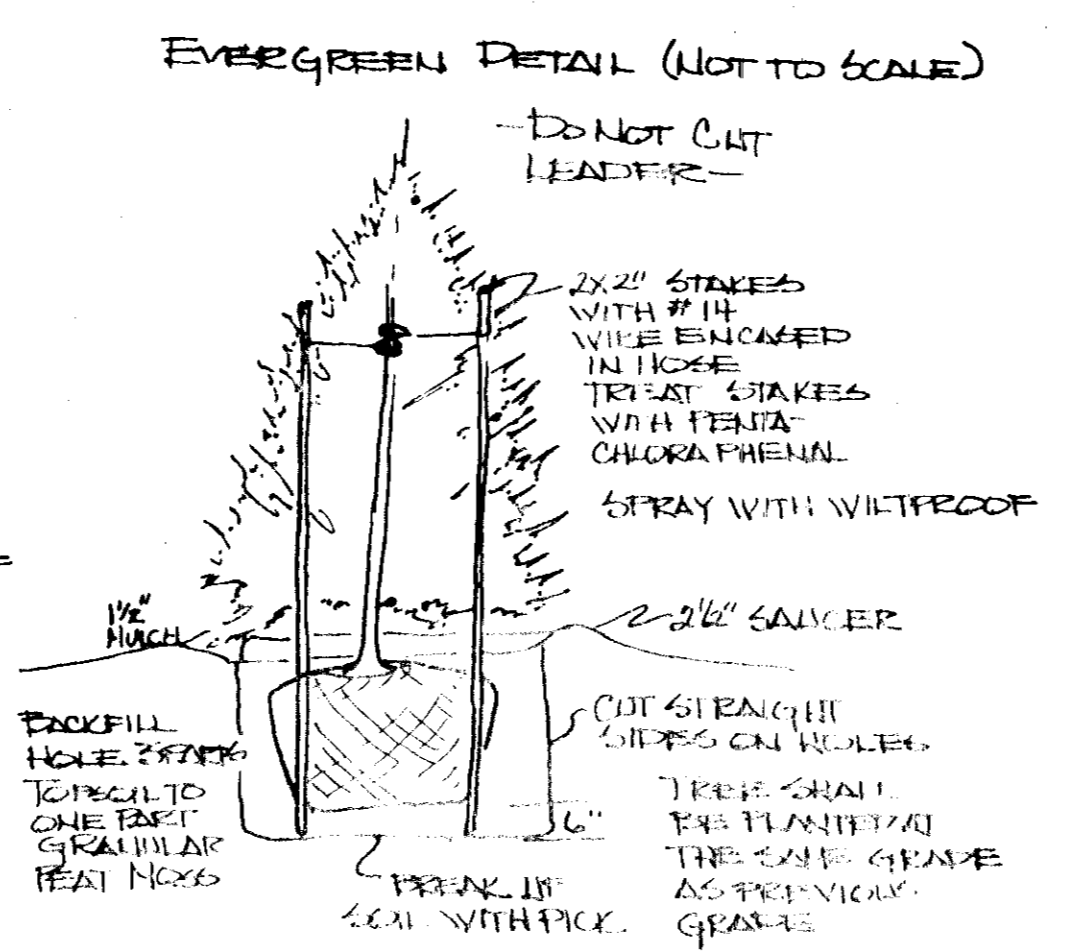 EVERGREEN DETAIL (NOT TO SCALE)
- DO NOT CUT
LEADER -
2X2" STAKES
WITH #14
WIRE ENCASED
IN HOSE
TREAT STAKES
WITH PENTA-
CHLORA PHENAL
SPRAY WITH WILTPROOF
1½"
MULCH
2½" SAUCER
BACKFILL
HOLE 3 PARTS
TOPSOIL TO
ONE PART
GRANULAR
PEAT MOSS
CUT STRAIGHT
SIDES ON HOLES
6"
TREE SHALL
BE PLANTED AT
THE SAME GRADE
AS PREVIOUS
GRADE
BREAK UP
SOIL WITH PICK